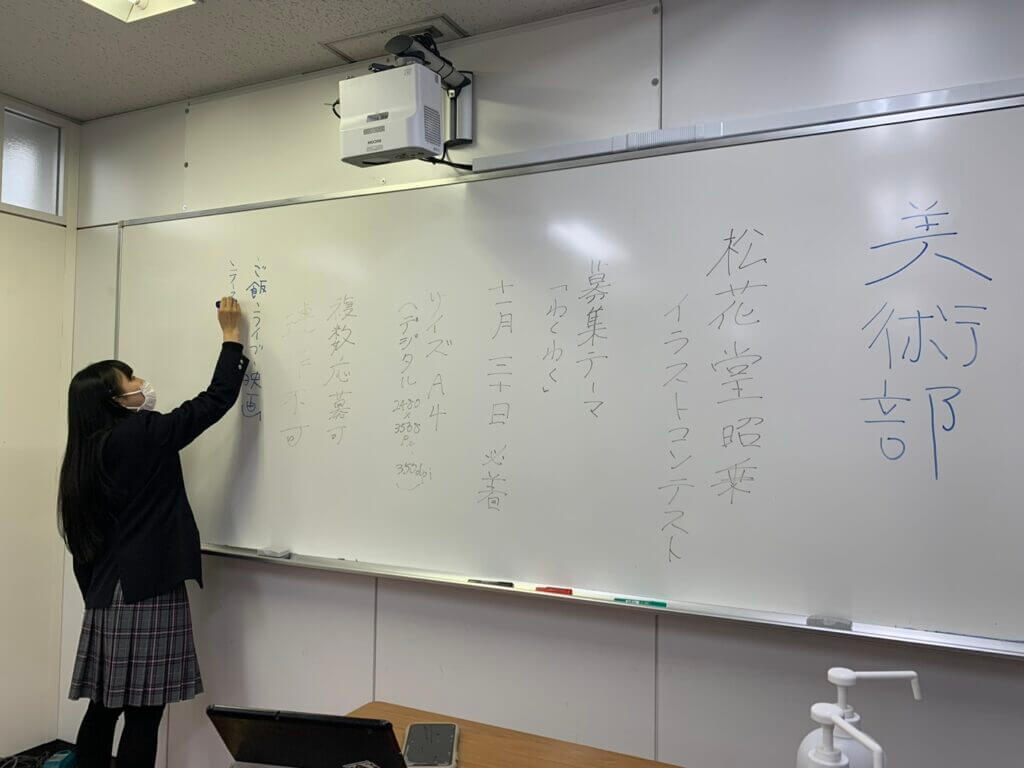 美術部
松花堂昭乗
イラストコンテスト
募集テーマ
「わくわく」
十一月三十日必着
サイズA4
(デジタル
350dpi)
複数応募可
・ご飯・ライブ・映画
RICOH